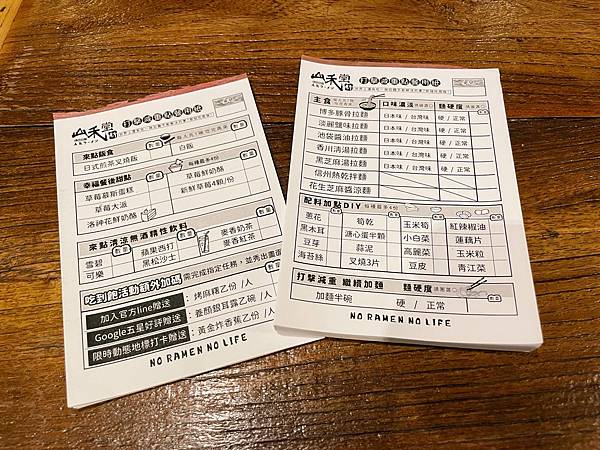 山禾堂 打擊減重點餐用紙
來點飯食 數量
日式煎茶叉燒飯 白飯
幸福餐後甜點 數量
草莓慕斯蛋糕 草莓鮮奶酪
草莓大派 新鮮草莓4顆/份
洛神花鮮奶酪
來點清涼無酒精性飲料 數量
雪碧 蘋果西打 麥香奶茶
可樂 黑松沙士 麥香紅茶
吃到飽活動額外加碼 需完成指定任務，並秀出畫面
加入官方line贈送 : 烤麻糬乙份 /人
Google五星好評贈送 : 養顏銀耳露乙碗 /人
限時動態地標打卡贈送 : 黃金炸香蕉乙份 /人
NO RAMEN NO LIFE
山禾堂 打擊減重點餐用紙
主食 數量 口味濃淡 麵硬度
博多豚骨拉麵 日本味 / 台灣味 硬 / 正常
淡麗鹽味拉麵 日本味 / 台灣味 硬 / 正常
池袋醬油拉麵 日本味 / 台灣味 硬 / 正常
香川清湯拉麵 日本味 / 台灣味 硬 / 正常
黑芝麻湯拉麵 日本味 / 台灣味 硬 / 正常
信州熱乾拌麵
花生芝麻醬涼麵
配料加點DIY 每種最多4份 數量
蔥花 筍乾 玉米筍 紅辣椒油
黑木耳 溏心蛋半顆 小白菜 蓮藕片
豆芽 蒜泥 高麗菜 玉米粒
海苔絲 叉燒3片 豆皮 青江菜
打擊減重 繼續加麵 麵硬度
加麵半碗 硬 / 正常
NO RAMEN NO LIFE